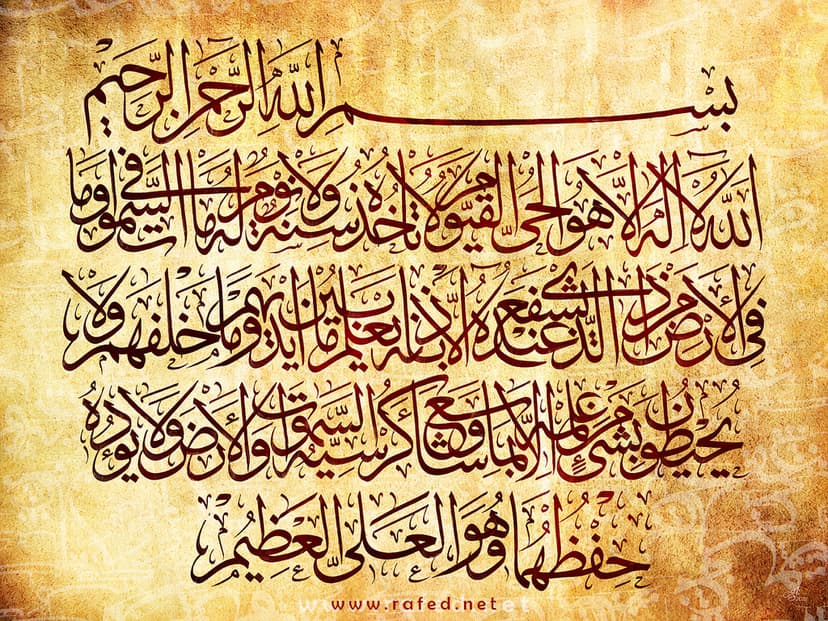 بِسْمِ اللَّهِ الرَّحْمنِ الرَّحِيمِ
اللَّهُ لَا إِلَهَ إِلَّا هُوَ الْحَىُّ الْقَيُّومُ لَا تَأْخُذُهُ سِنَةٌ وَلَا نَوْمٌ لَهُ مَا فِى السَّمَوَاتِ وَمَا
فِى الْأَرْضِ مَنْ ذَا الَّذِى يَشْفَعُ عِنْدَهُ إِلَّا بِإِذْنِهِ يَعْلَمُ مَا بَيْنَ أَيْدِيهِمْ وَمَا خَلْفَهُمْ وَلَا
يُحِيطُونَ بِشَىْءٍ مِنْ عِلْمِهِ إِلَّا بِمَا شَاءَ وَسِعَ كُرْسِيُّهُ السَّمَوَاتِ وَالْأَرْضَ وَلَا يَؤُدُهُ
حِفْظُهُمَا وَهُوَ الْعَلِىُّ الْعَظِيمُ
www.rafed.net